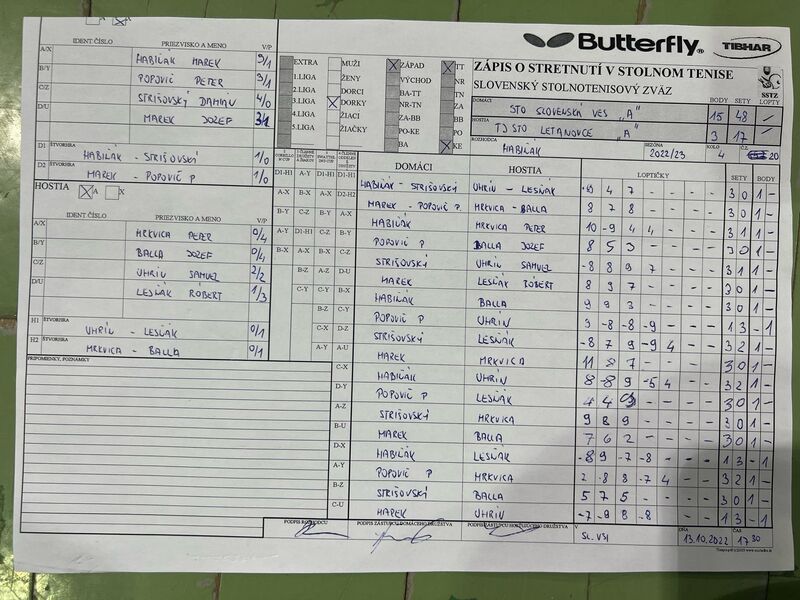 Butterfly® TIBHAR
ZÁPIS O STRETNUTÍ V STOLNOM TENISE
SLOVENSKÝ STOLNOTENISOVÝ ZVÄZ
SSTZ
BODY SETY LOPTY
DOMÁCI STO SLOVENSKÁ VES „A" 15 48 –
HOSTIA TJ STO LETANOVCE „A" 3 17 –
ROZHODCA HABIŇÁK
SEZÓNA 2022/23
KOLO 4
20
IDENT.ČÍSLO PRIEZVISKO A MENO V/P
A/X HABIŇÁK MAREK 3/1
B/Y POPOVIČ PETER 3/1
C/Z STRIŠOVSKÝ DAMIÁN 4/0
D/U MAREK JOZEF 3/1
D1 ŠTVORHRA HABIŇÁK - STRIŠOVSKÝ 1/0
D2 MAREK - POPOVIČ P 1/0
HOSTIA X A X
IDENT.ČÍSLO PRIEZVISKO A MENO V/P
A/X MRKVICA PETER 0/4
B/Y BALLA JOZEF 0/4
C/Z UHRÍN SAMUEL 2/2
D/U LESŇÁK RÓBERT 1/3
H1 ŠTVORHRA UHRÍN - LESŇÁK 0/1
H2 ŠTVORHRA MRKVICA - BALLA 0/1
PRIPOMIENKY, POZNÁMKY
EXTRA MUŽI X ZÁPAD X TT
1.LIGA ŽENY VÝCHOD NR
2.LIGA DORCI BA-TT TN
3.LIGA X DORKY NR-TN ZA
4.LIGA ŽIACI ZA-BB BB
5.LIGA ŽIAČKY PO-KE PO
BA X KE
DOMÁCI HOSTIA LOPTIČKY SETY BODY
D1-H1 A-Y D1-H1 D1-H1 HABIŇÁK - STRIŠOVSKÝ UHRÍN - LESŇÁK 4 7 – – – – 3 0 1 –
A-X B-X A-X D2-H2 MAREK - POPOVIČ P. MRKVICA - BALLA 8 7 8 – – – – 3 0 1 –
B-Y C-Z B-Y A-X HABIŇÁK MRKVICA PETER 10 -9 4 4 – – – 3 1 1 –
A-Y D1-H1 C-Z B-Y POPOVIČ P BALLA JOZEF 8 5 3 – – – – 3 0 1 –
B-X A-X A-Y C-Z STRIŠOVSKÝ UHRÍN SAMUEL -8 8 9 7 – – – 3 1 1 –
B-Z A-Z D-U MAREK LESŇÁK RÓBERT 8 9 7 – – – – 3 0 1 –
C-Y C-Y B-X HABIŇÁK BALLA 9 9 3 – – – – 3 0 1 –
B-X C-Y POPOVIČ P UHRÍN 3 -8 -8 -9 – – – 1 3 – 1
C-X D-Z STRIŠOVSKÝ LESŇÁK -8 7 9 -9 4 – – 3 2 1 –
A-Y A-U MAREK MRKVICA 11 8 7 – – – – 3 0 1 –
C-X HABIŇÁK UHRÍN 8 -8 9 -5 4 – – 3 2 1 –
D-Y POPOVIČ P LESŇÁK 4 4 9 – – – – 3 0 1 –
A-Z STRIŠOVSKÝ MRKVICA 9 8 9 – – – – 3 0 1 –
B-U MAREK BALLA 7 6 2 – – – – 3 0 1 –
D-X HABIŇÁK LESŇÁK -8 9 -7 -8 – – – 1 3 – 1
A-Y POPOVIČ P MRKVICA 2 -8 8 -7 4 – – 3 2 1 –
B-Z STRIŠOVSKÝ BALLA 5 7 5 – – – – 3 0 1 –
C-U MAREK UHRÍN -7 -9 8 -8 – – – 1 3 – 1
PODPIS ROZHODCU PODPIS ZÁSTUPCU DOMÁCEHO DRUŽSTVA PODPIS ZÁSTUPCU HOSŤUJÚCEHO DRUŽSTVA
V SL. VSI
DŇA 13.10.2022
ČAS 17 30